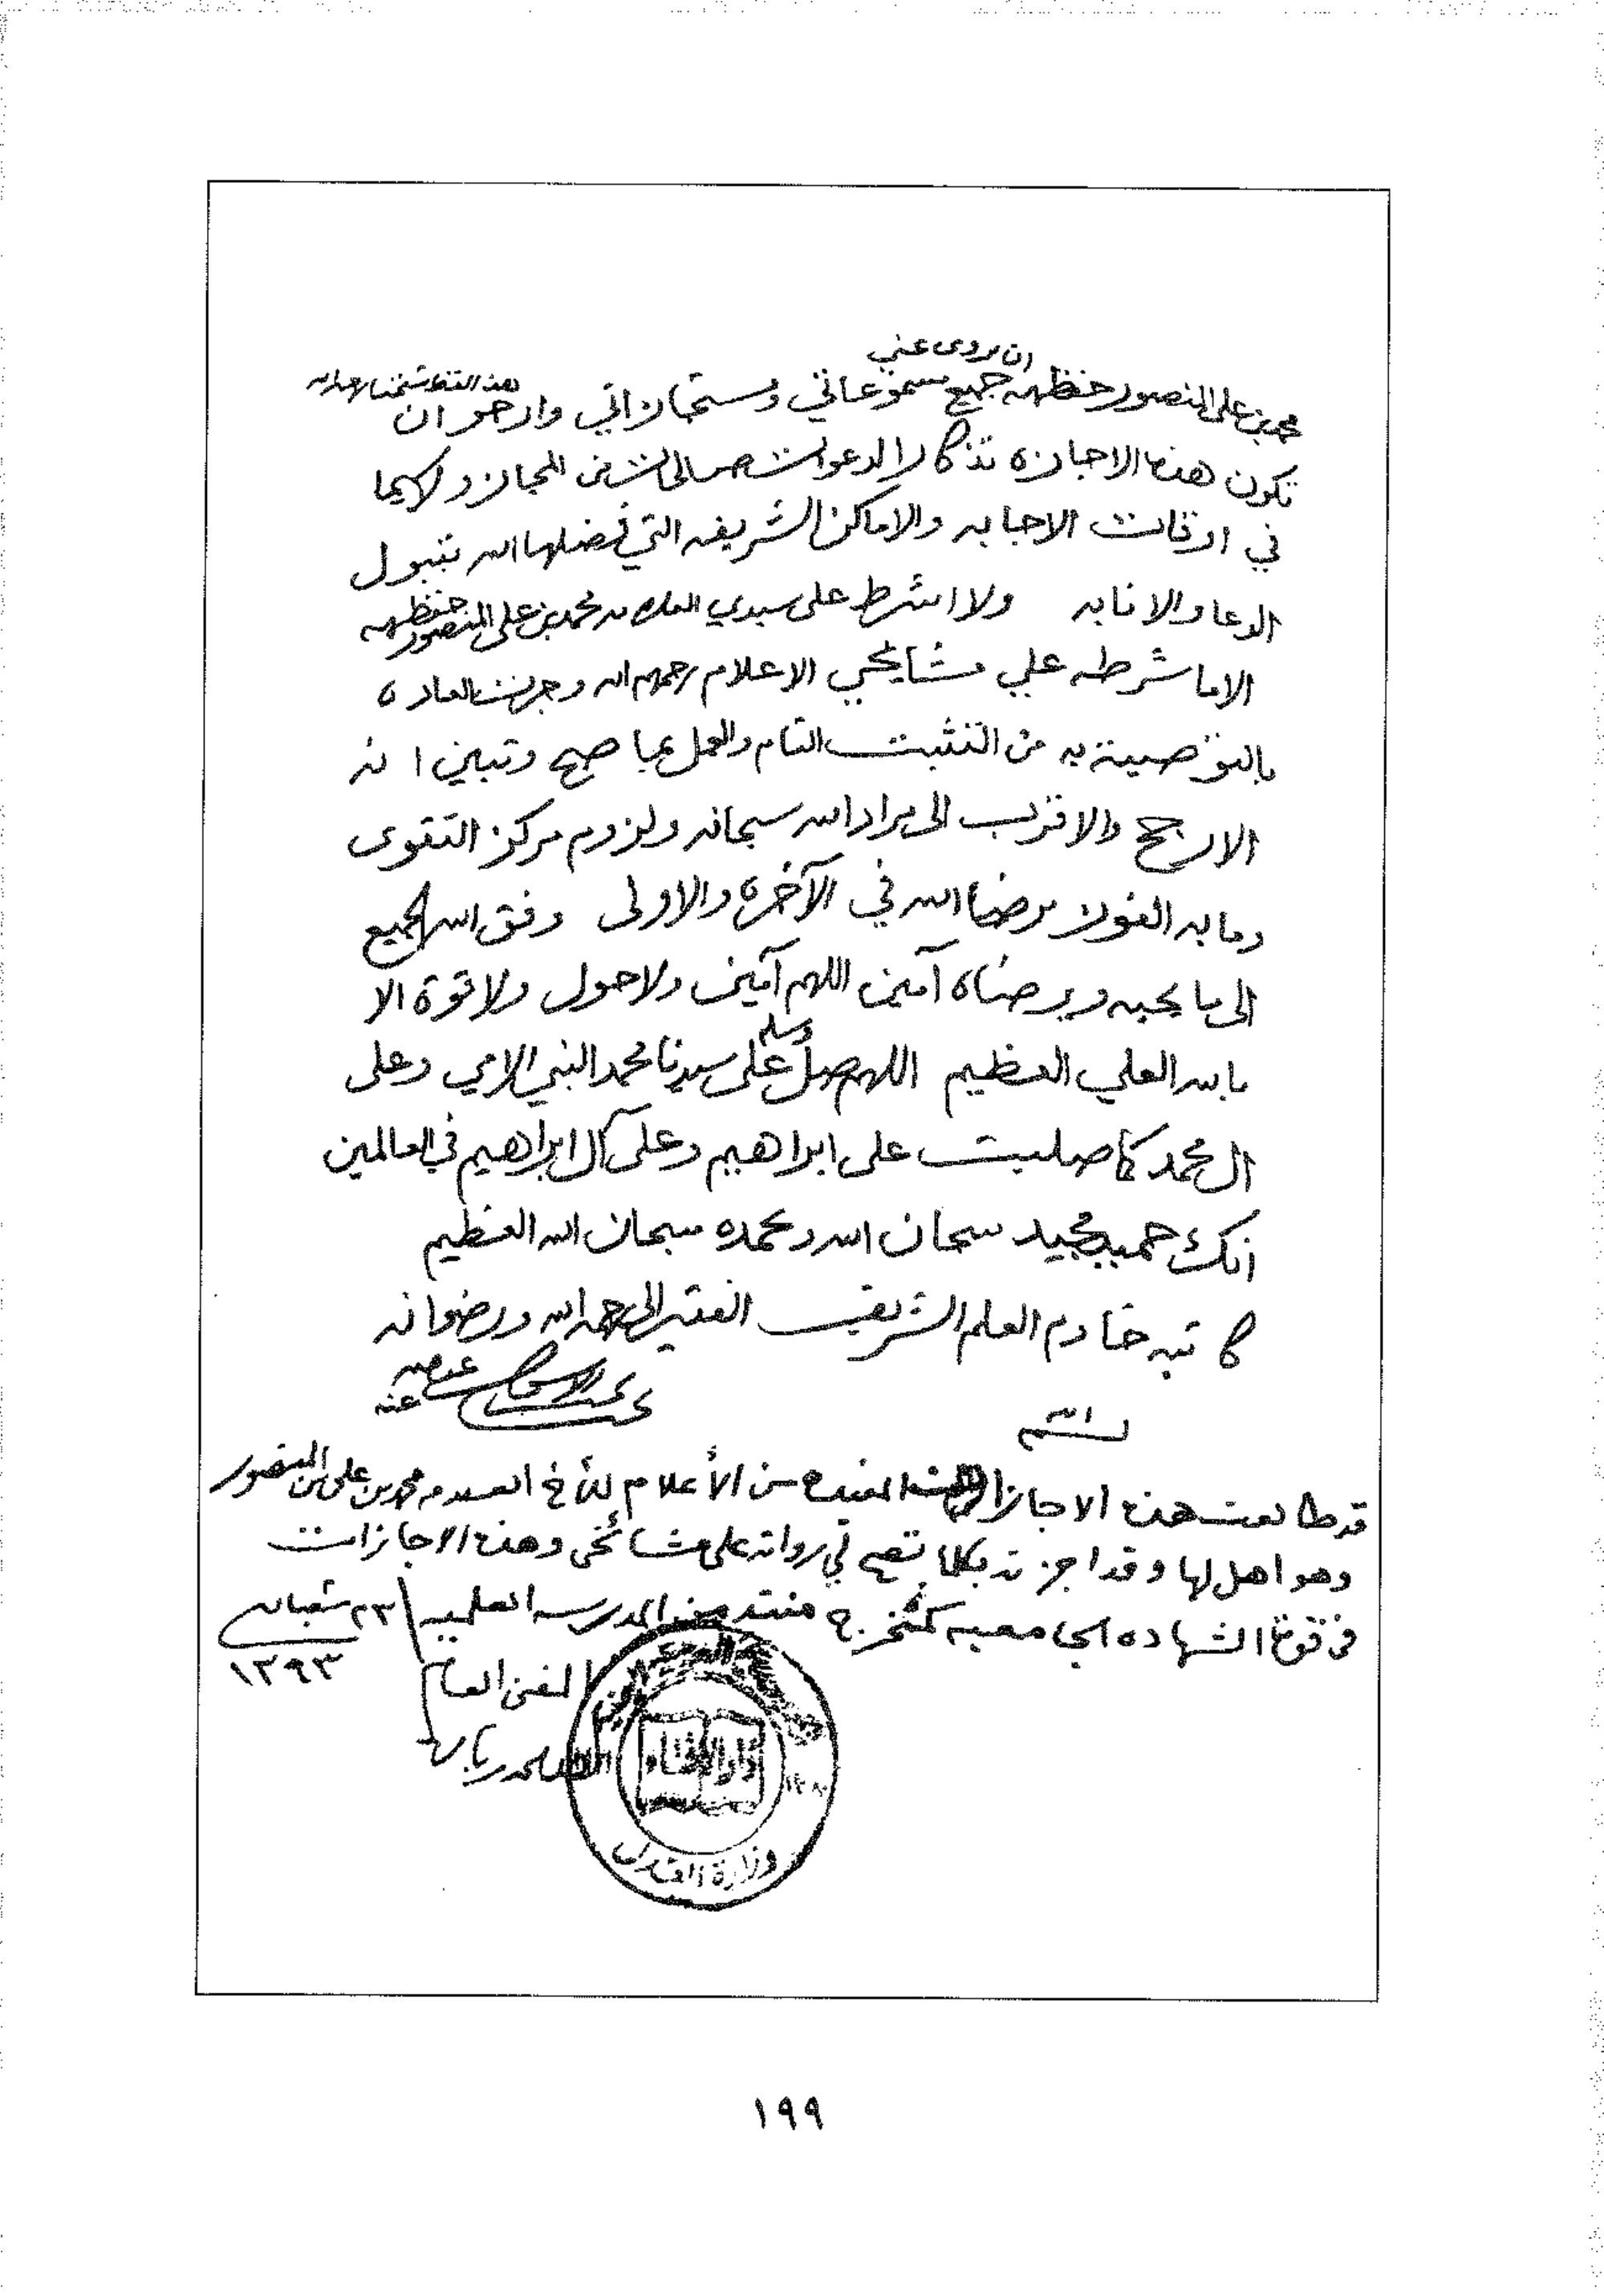 ان يروي عني
محمد بن علي المنصور حفظه الله جميع مسموعاتي ومستجازاتي وارجو ان
تكون هذه الاجازه تذكارا لدعوات من المجاز ولاسيما
في اوقات الاجابه والاماكن الشريفه التي فضلها الله بقبول
الدعا والانابه ولا اشرط على سيدي العلامه محمد بن علي المنصور حفظه الله
الا ما شرطه علي مشايخي الاعلام رحمهم الله وجرت العاده
بالتوصية به من التثبت التام والعمل بما صح وتبين انه
الارجح والاقرب الى مراد الله سبحانه ولزوم مركز التقوى
وما به الفوز برضا الله في الآخره والاولى وفق الله الجميع
الى ما يحبه ويرضاه آمين اللهم آمين ولا حول ولا قوة الا
بالله العلي العظيم اللهم صل وسلم على سيدنا محمد النبي الامي وعلى
ال محمد كما صليت على ابراهيم وعلى آل ابراهيم في العالمين
انك حميد مجيد سبحان الله وبحمده سبحان الله العظيم
كاتبه خادم العلم الشريف الفقير الى رحمة الله ورضوانه
عنه
قد طالعت هذه الاجازات المفيده من الأعلام للأخ العلامه محمد بن علي بن المنصور
وهو اهل لها وقد اجزته بكلما تصح لي روايته على مشائخي وهذه الاجازات
في قوة الشهاده الجامعيه كمتخرج منتهٍ من المدرسه العلميه ٢٣ شعبان
١٣٩٣
المفتي العام
احمد زباره
دار الافتاء
وزارة العدل
١٩٩